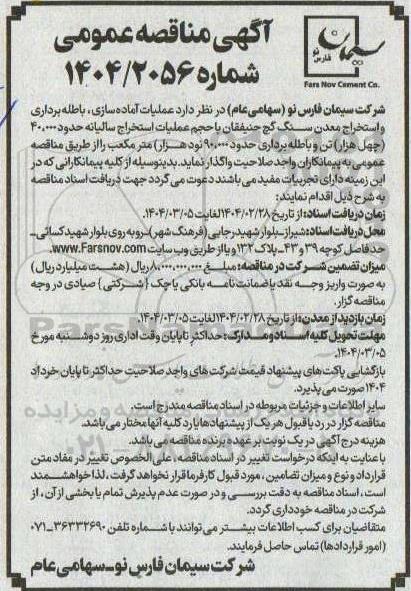 آگهی مناقصه عمومی
شماره ۱۴۰۴/۲۰۵۶
سیمان فارس نو
Fars Nov Cement Co.
شرکت سیمان فارس نو (سهامی عام) در نظر دارد عملیات آماده سازی، باطله برداری
و استخراج معدن سنگ گچ حنیفقان با حجم عملیات استخراج سالیانه حدود ۴۰،۰۰۰
(چهل هزار) تن و باطله برداری حدود ۹۰،۰۰۰ (نود هزار) متر مکعب را از طریق مناقصه
عمومی به پیمانکاران واجد صلاحیت واگذار نماید. بدینوسیله از کلیه پیمانکارانی که در
این زمینه دارای تجربیات مفید می باشند دعوت می گردد جهت دریافت اسناد مناقصه
به شرح ذیل اقدام نمایند:
زمان دریافت اسناد: از تاریخ ۱۴۰۴/۰۲/۲۸ لغایت ۱۴۰۴/۰۳/۰۵.
محل دریافت اسناد: شیراز ـ بلوار شهید رجایی (فرهنگ شهر) ـ روبه روی بلوار شهید کسائی ـ
حد فاصل کوچه ۳۹ و ۴۳ ـ پلاک ۱۳۲ و یا از طریق وب سایت www.Farsnov.com.
میزان تضمین شرکت در مناقصه: مبلغ ۸،۰۰۰،۰۰۰،۰۰۰ ریال (هشت میلیارد ریال)
به صورت واریز وجه نقد یا ضمانت نامه بانکی یا چک (شرکتی) صیادی در وجه
مناقصه گزار.
زمان بازدید از معدن: از تاریخ ۱۴۰۴/۰۲/۲۸ لغایت ۱۴۰۴/۰۳/۰۵.
مهلت تحویل کلیه اسناد و مدارک: حداکثر تا پایان وقت اداری روز دوشنبه مورخ
۱۴۰۴/۰۳/۰۵.
بازگشایی پاکت های پیشنهاد قیمت شرکت های واجد صلاحیت حداکثر تا پایان خرداد
۱۴۰۴ صورت می پذیرد.
سایر اطلاعات و جزئیات مربوطه در اسناد مناقصه مندرج است.
مناقصه گزار در رد یا قبول هر یک از پیشنهادها یا رد کلیه آنها مختار می باشد.
هزینه درج آگهی در یک نوبت بر عهده برنده مناقصه می باشد.
با عنایت به اینکه درخواست تغییر در اسناد مناقصه، علی الخصوص تغییر در مفاد متن
قرارداد و نوع و میزان تضامین، مورد قبول کارفرما قرار نخواهد گرفت، لذا خواهشمند
است، اسناد مناقصه به دقت بررسی و در صورت عدم پذیرش تمام یا بخشی از آن، از
شرکت در مناقصه خودداری گردد.
متقاضیان برای کسب اطلاعات بیشتر می توانند با شماره تلفن ۳۶۳۳۲۶۹۰ـ۰۷۱
(امور قراردادها) تماس حاصل فرمایند.
شرکت سیمان فارس نو ـ سهامی عام